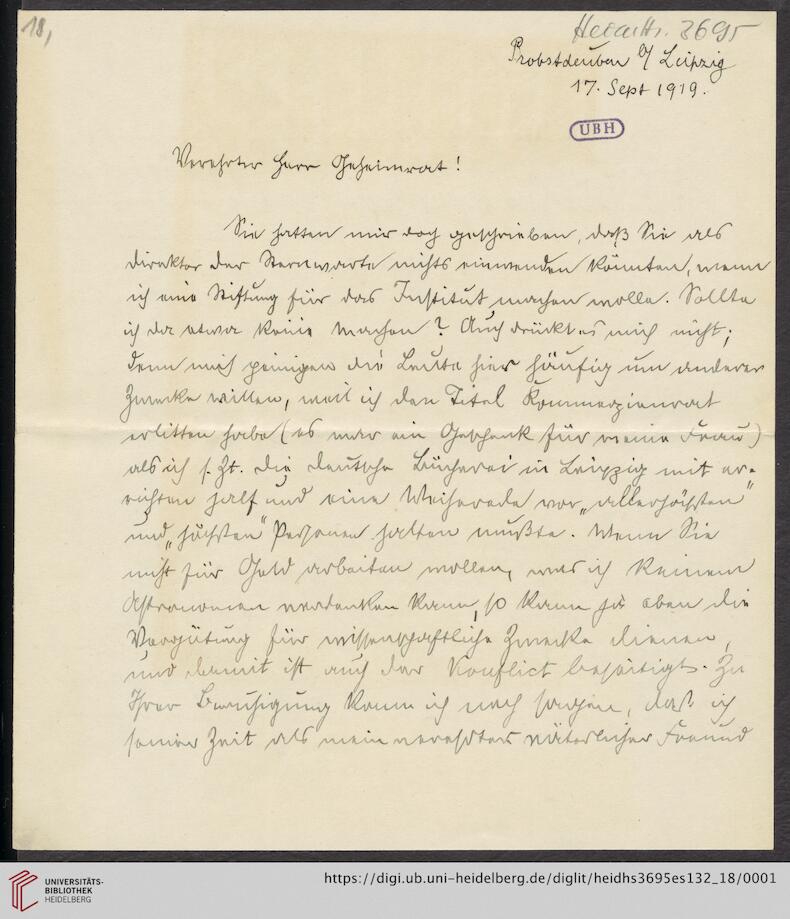 18,
Heid. Hs. 3695
Probstdeuben b/ Leipzig
17. Sept 1919.
UBH
Verehrter Herr Geheimrat!
Sie hatten mir doch geschrieben, daß Sie als
Direktor der Sternwarte nichts einwenden könnten, wenn
ich eine Stiftung für das Institut machen wolle. Sollte
ich da etwa keine machen? Auch drückt es mich nicht;
denn mich peinigen die Leute hier häufig um anderer
Zwecke willen, weil ich den Titel Kommerzienrat
erlitten habe (es war ein Geschenk für meine Frau)
als ich s. Zt. die deutsche Bücherei in Leipzig mit er-
richten half und eine Weiherede vor „allerhöchsten"
und „höchsten" Personen halten mußte. Wenn Sie
nicht für Geld arbeiten wollen, was ich keinem
Astronomen verdenken kann, so kann ja eben die
Vergütung für wissenschaftliche Zwecke dienen,
und damit ist auch der Konflict beseitigt. Zu
Ihrer Beruhigung kann ich noch sagen, daß ich
seiner Zeit als mein verehrter väterlicher Freund
UNIVERSITÄTS-
BIBLIOTHEK
HEIDELBERG
https://digi.ub.uni-heidelberg.de/diglit/heidhs3695es132_18/0001